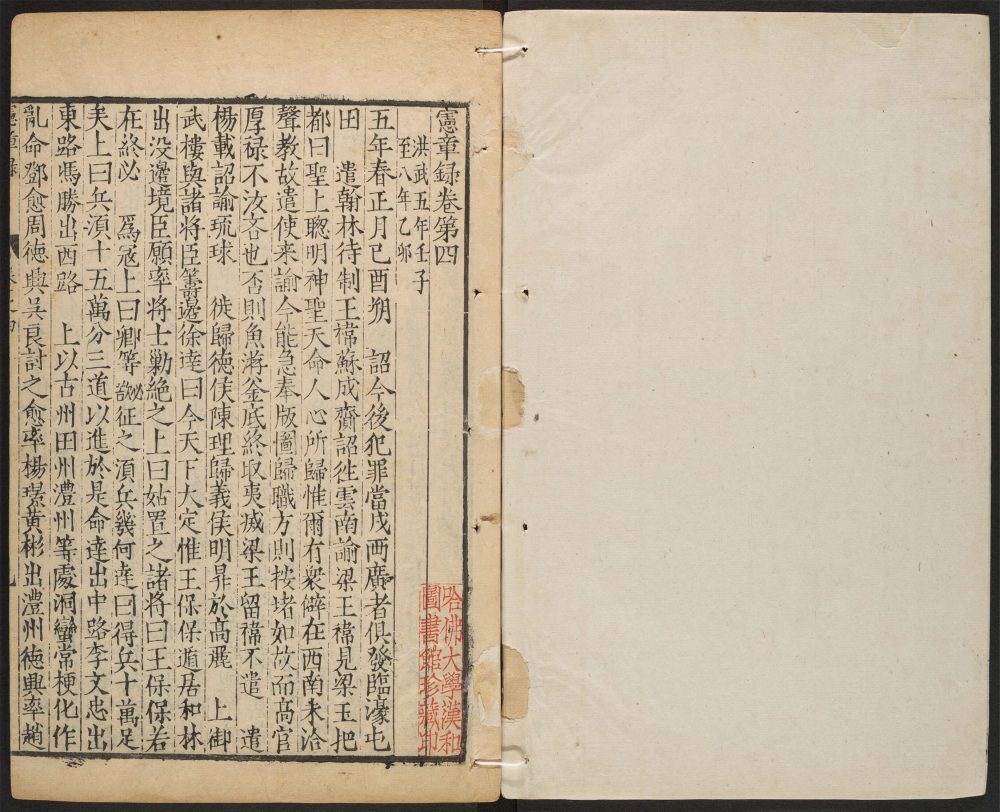 憲章録卷第四
洪武五年壬子
至八年乙卯
五年春正月己酉朔　詔今後犯罪當戍兩廣者俱發臨濠屯
田　遣翰林待制王禕蘇成齎詔徃雲南諭梁王禕見梁王把
都曰聖上聰明神聖天命人心所歸惟爾有衆僻在西南未洽
聲教故遣使来諭今能急奉版圖歸職方則按堵如故而高官
厚禄不汝吝也否則魚游釜底終取夷滅梁王留禕不遣　遣
楊載詔諭琉球　徙歸徳侯陳理歸義侯明昇於高麗　上御
武樓與諸将臣籌邊徐逹曰今天下大定惟王保保遁居和林
出没邊境臣願率将士勦絶之上曰姑置之諸将曰王保保若
在終必　爲冦上曰卿等必欲征之湏兵幾何逹曰得兵十萬足
矣上曰兵湏十五萬分三道以進於是命逹出中路李文忠出
東路馮勝出西路　上以古州田州澧州等處洞蠻常梗化作
亂命鄧愈周徳興吴良討之愈率楊璟黄彬出澧州徳興率趙
憲章録
卷之四
哈佛大學漢和
圖書館珍藏印